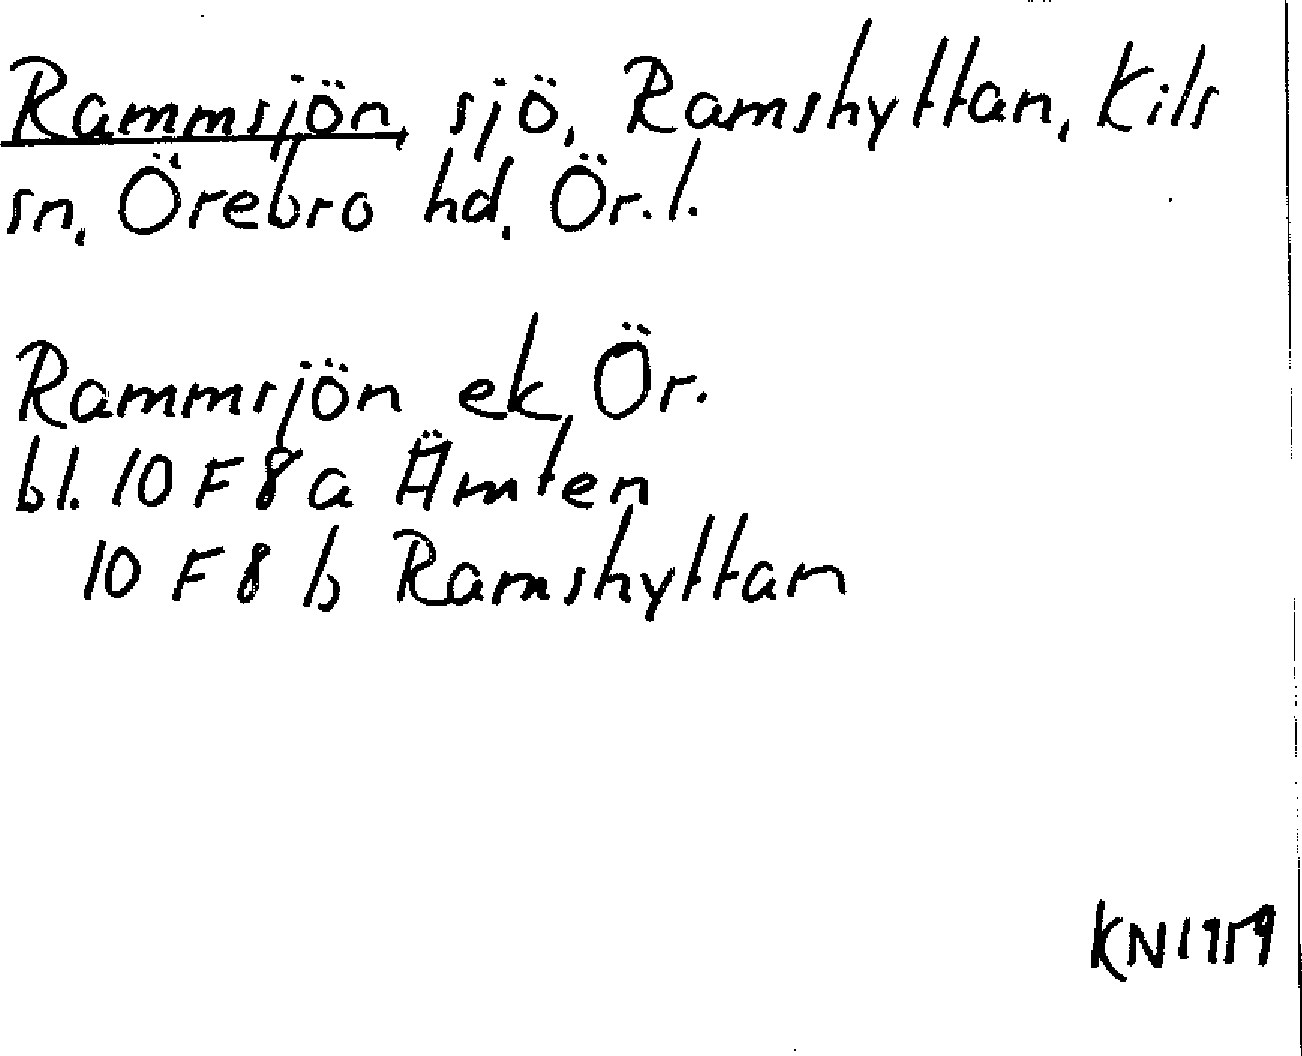 Rammsjön, sjö, Ramshyttan, Kils
sn, Örebro hd, Ör. l.
Rammsjön ek, Ör.
bl. 10 F 8 a Ämten
10 F 8 b Ramshyttan
KN